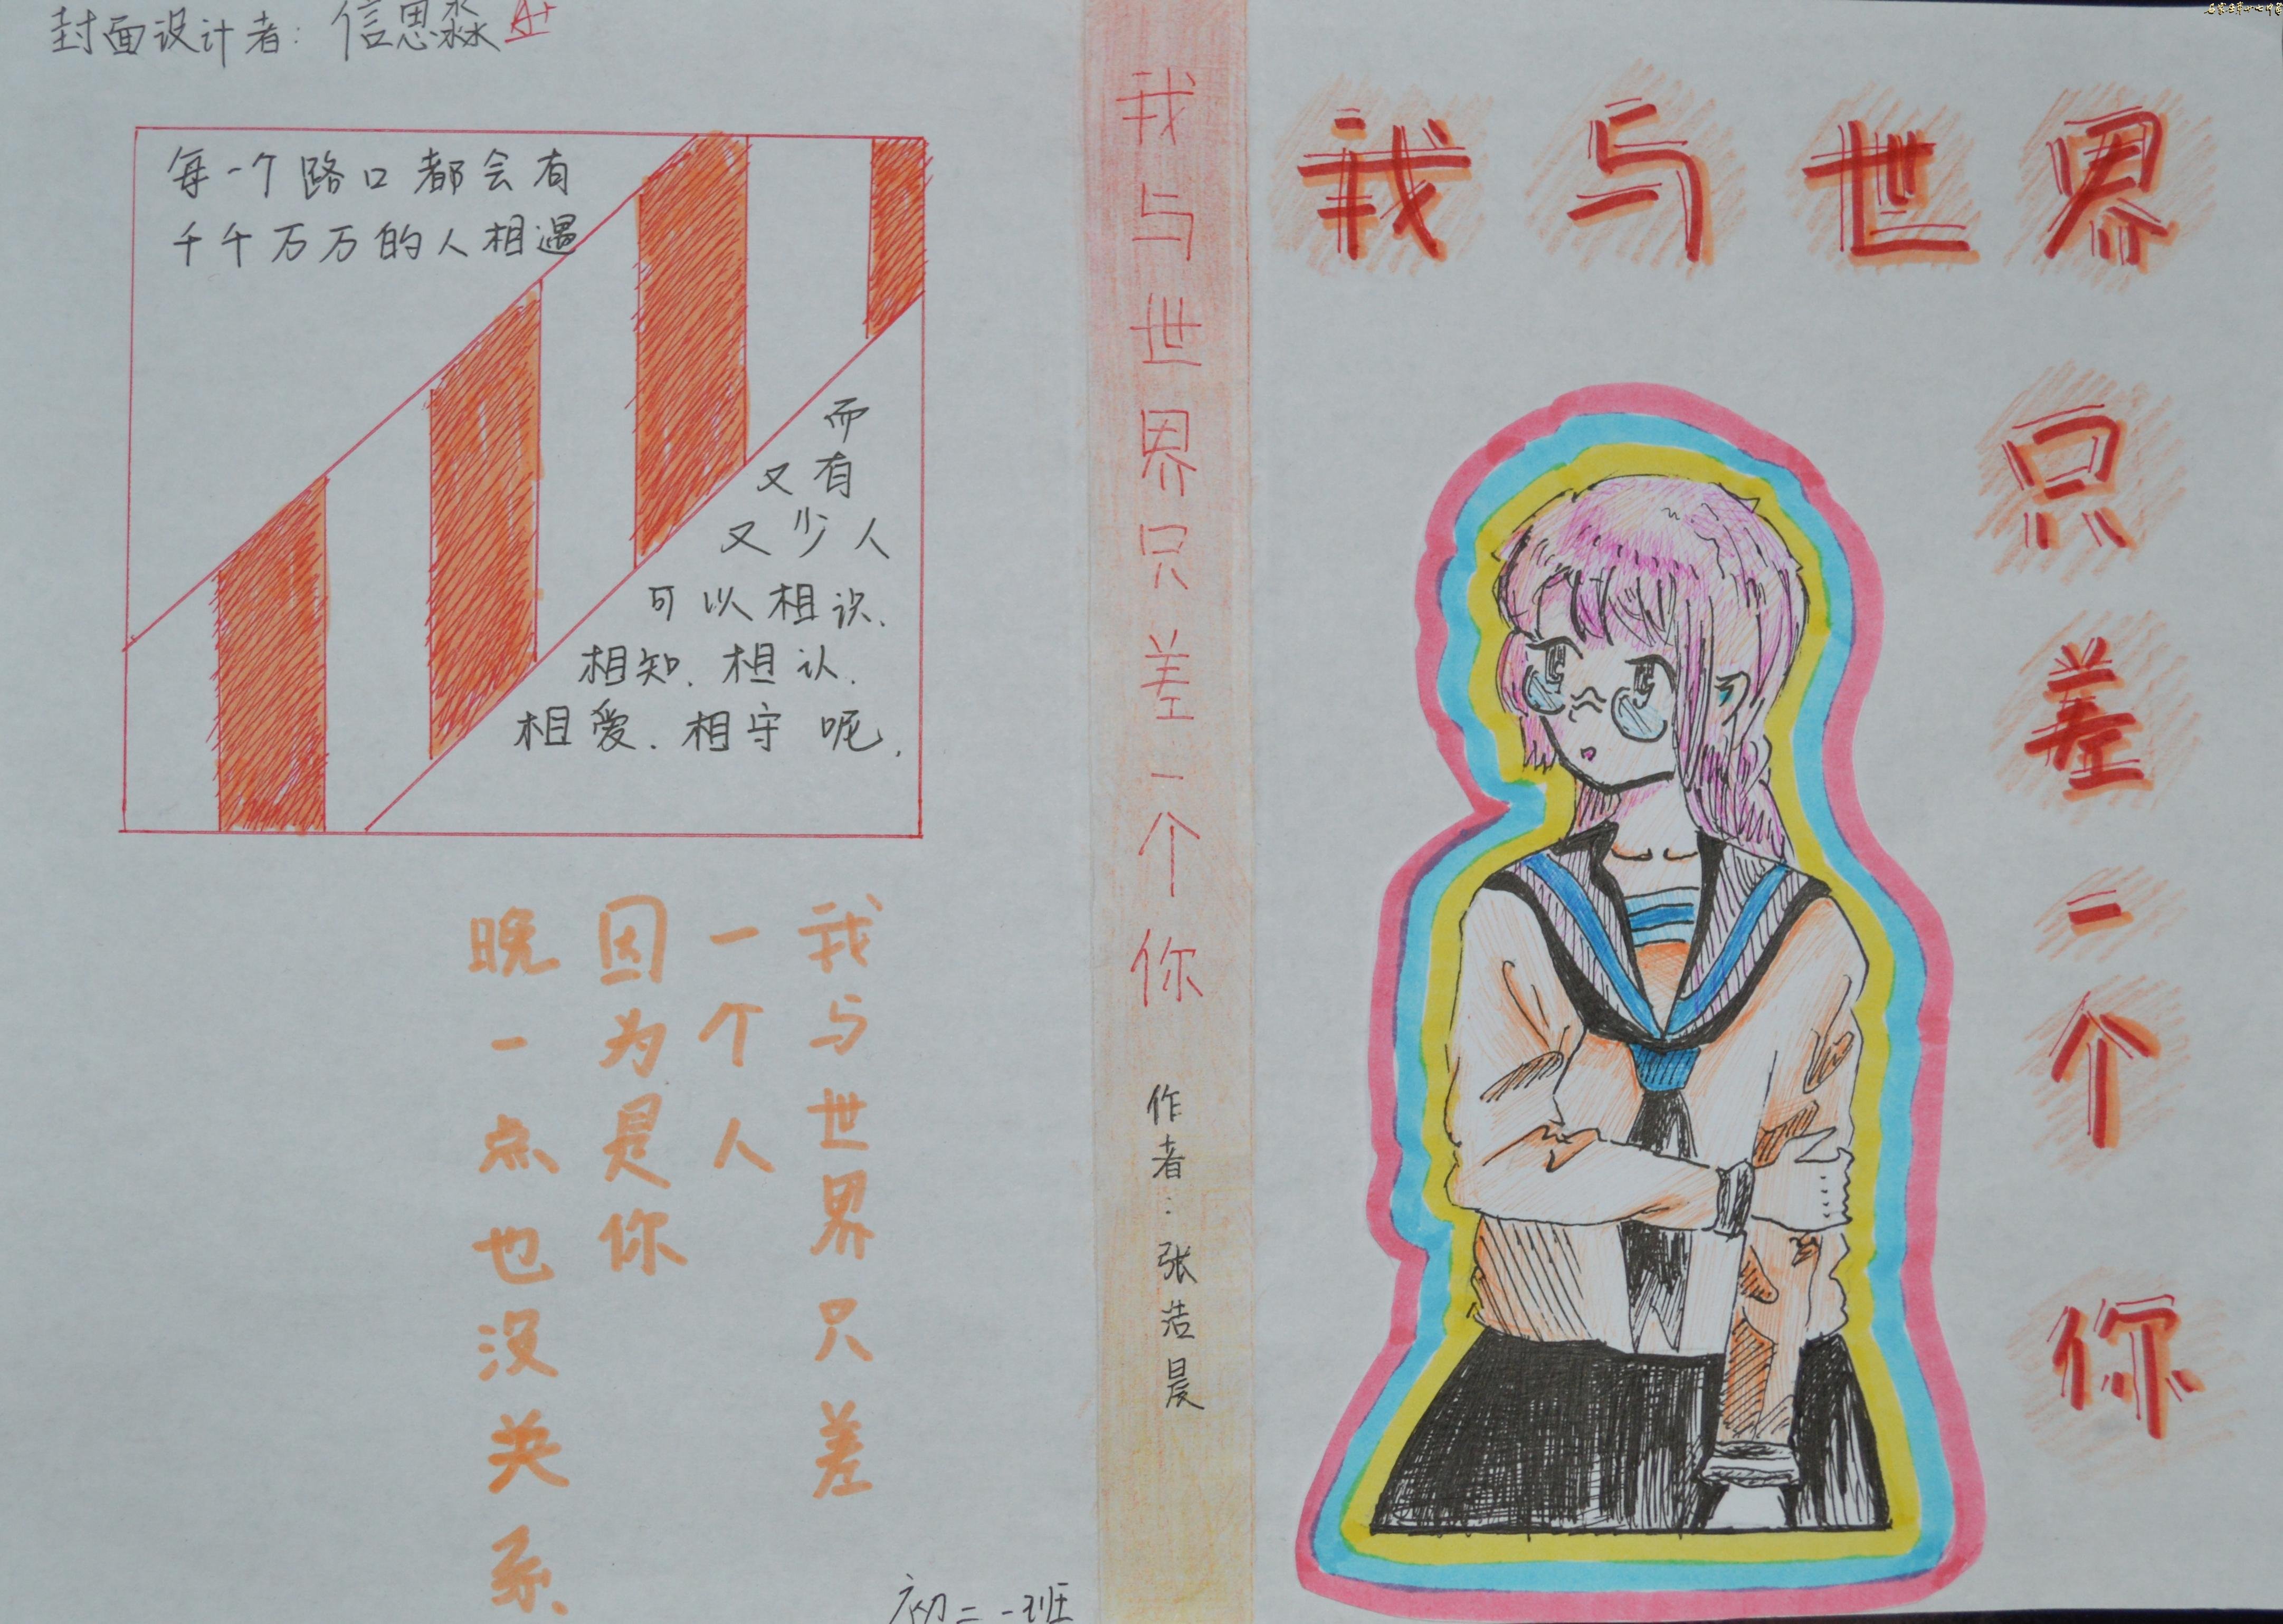 封面设计者：信思淼 A+
每一个路口都会有
千千万万的人相遇
而
又有
又少人
可以相识、
相知、相认、
相爱、相守呢，
我与世界只差
一个人
因为是你
晚一点也没关系
初二一班
我与世界只差一个你
作者：张浩晨
我与世界
只差一个你